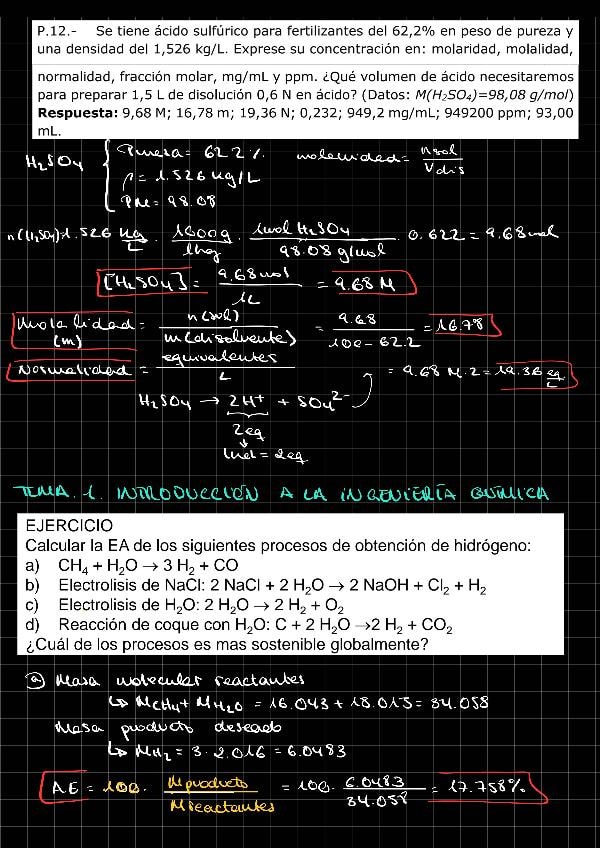 P.12.- Se tiene ácido sulfúrico para fertilizantes del 62,2% en peso de pureza y
una densidad del 1,526 kg/L. Exprese su concentración en: molaridad, molalidad,
normalidad, fracción molar, mg/mL y ppm. ¿Qué volumen de ácido necesitaremos
para preparar 1,5 L de disolución 0,6 N en ácido? (Datos: M(H₂SO₄)=98,08 g/mol)
Respuesta: 9,68 M; 16,78 m; 19,36 N; 0,232; 949,2 mg/mL; 949200 ppm; 93,00
mL.
H₂SO₄ { Pureza = 62.2%
ρ = 1.526 kg/L
PM = 98.08
molaridad = nsol / Vdis
n(H₂SO₄) = 1.526 kg/L · 1000g/1kg · 1mol H₂SO₄/98.08 g/mol · 0.622 = 9.68 mol
[H₂SO₄] = 9.68 mol / 1L = 9.68 M
Molalidad (m) = n(sol) / m(disolvente) = 9.68 / 100-62.2 = 16.78
Normalidad = equivalentes / L = 9.68 M · 2 = 19.36 eq/L
H₂SO₄ → 2H⁺ + SO₄²⁻
2eq
1mol = 2eq
TEMA. 1. INTRODUCCIÓN A LA INGENIERÍA QUÍMICA
EJERCICIO
Calcular la EA de los siguientes procesos de obtención de hidrógeno:
a) CH₄ + H₂O → 3 H₂ + CO
b) Electrolisis de NaCl: 2 NaCl + 2 H₂O → 2 NaOH + Cl₂ + H₂
c) Electrolisis de H₂O: 2 H₂O → 2 H₂ + O₂
d) Reacción de coque con H₂O: C + 2 H₂O →2 H₂ + CO₂
¿Cuál de los procesos es mas sostenible globalmente?
a Masa molecular reactantes
↳ MCH₄ + MH₂O = 16.043 + 18.015 = 34.058
Masa producto deseado
↳ MH₂ = 3 · 2.016 = 6.0483
AE = 100 · Mproducto / Mreactantes = 100 · 6.0483 / 34.058 = 17.758%